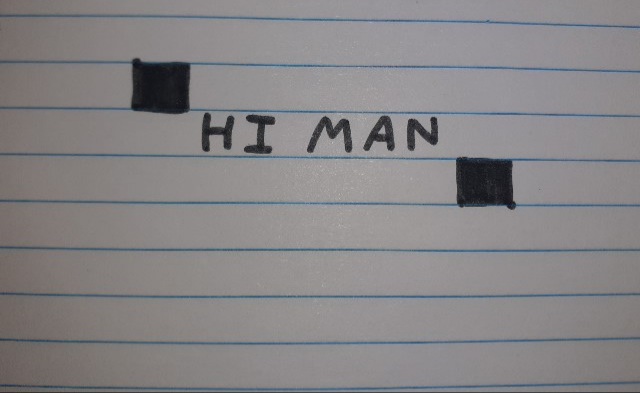 HI MAN